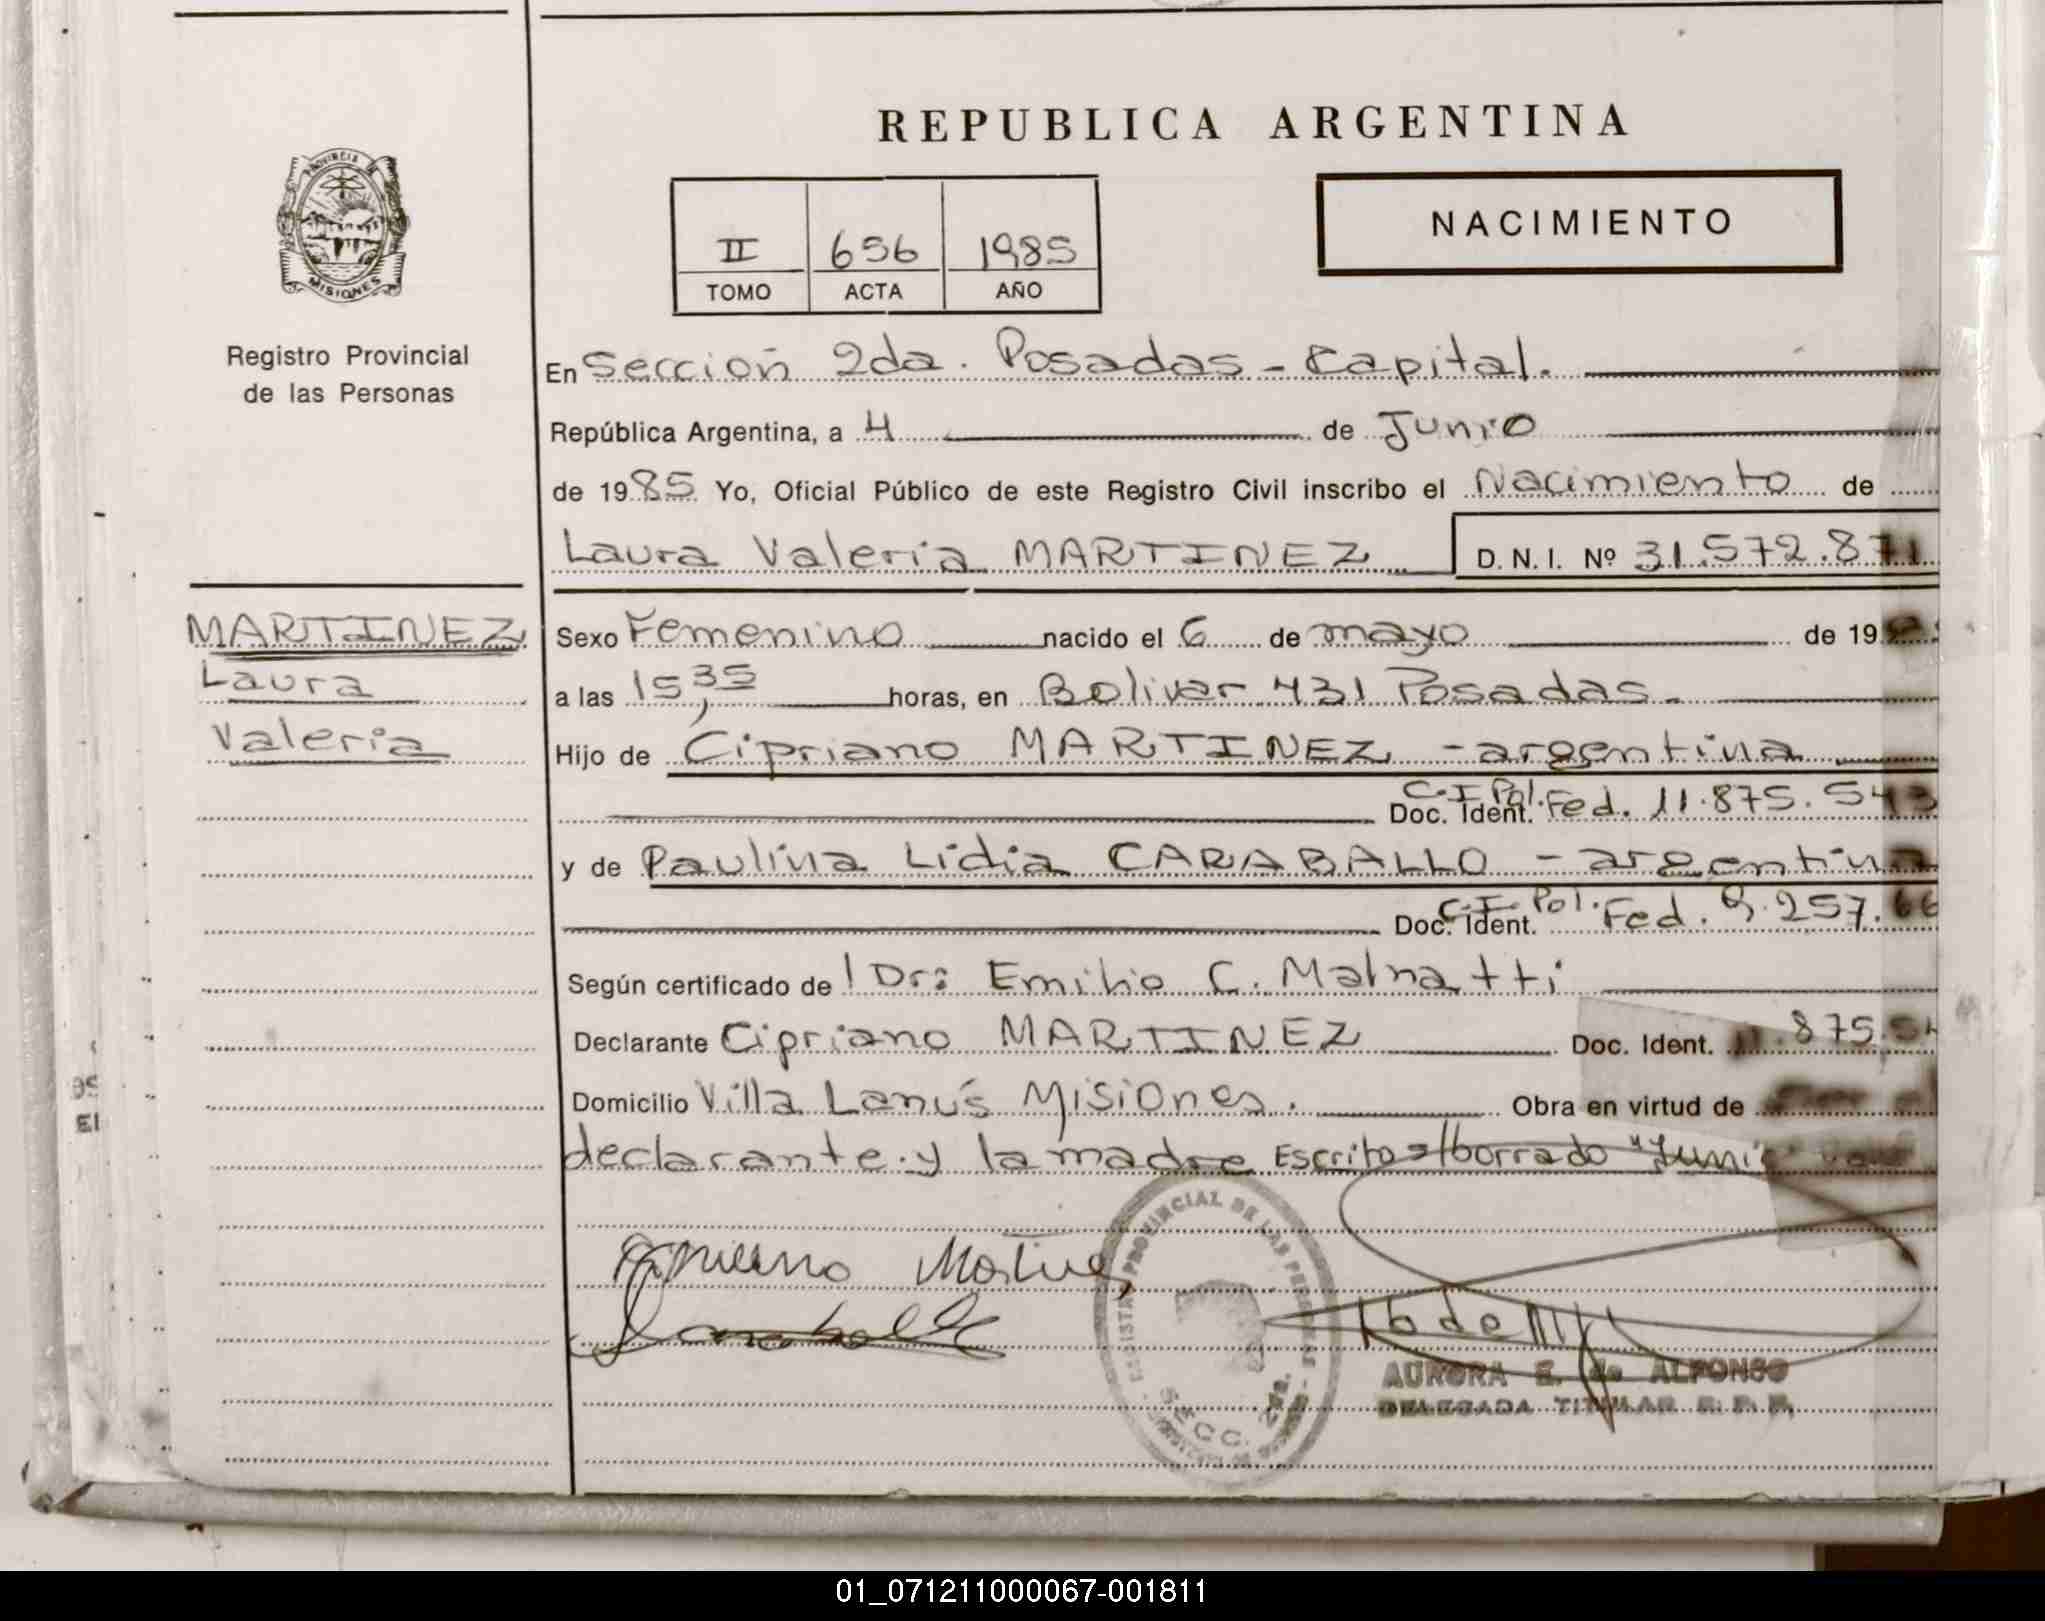 REPUBLICA ARGENTINA
NACIMIENTO
II 656 1985
TOMO ACTA AÑO
PROVINCIA DE
MISIONES
Registro Provincial
de las Personas
En Sección 2da. Posadas - Capital.
República Argentina, a 4 de Junio
de 1985 Yo, Oficial Público de este Registro Civil inscribo el Nacimiento de
Laura Valeria MARTINEZ D. N. I. Nº 31.572.871
MARTINEZ
Laura
Valeria
Sexo Femenino nacido el 6 de mayo de 19
a las 15,35 horas, en Bolivar 431 Posadas.
Hijo de Cipriano MARTINEZ - argentina
Doc. Ident. C.I. Pol. Fed. 11.875.543
y de Paulina Lidia CARABALLO - argentina
Doc. Ident. C.I. Pol. Fed. 9.257.66
Según certificado de l Dr: Emilio C. Malnatti
Declarante Cipriano MARTINEZ Doc. Ident. 11.875.54
Domicilio Villa Lanús Misiones. Obra en virtud de
declarante y la madre Escrito s/borrado "Junio"
Cipriano Martinez
Caraballo
REGISTRO PROVINCIAL DE LAS PERSONAS
SECC. 2da.
AURORA E. de ALFONSO
DELEGADA TITULAR R. P. P.
01_071211000067-001811